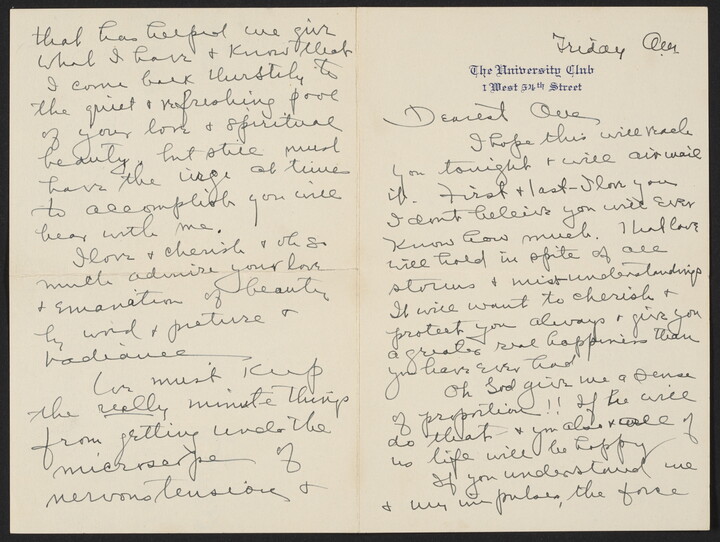 Friday
The University Club
1 West 54th Street
Dearest One
I hope this will reach
you tonight & will air mail
it. First & last – I love you
I don't beleive you will ever
know how much. That love
will hold in spite of all
storms & misunderstandings
It will want to cherish &
protect you always & give you
a greater real happiness than
you have ever had
Oh God give me a sense
of proportion!! If he will
do that & you also & all of
us life will be happy
If you understand me
& my impulses, the force
that has helped me give
what I have & know that
I come back thirstily to
the quiet & refreshing pool
of your love & spiritual
beauty, but still must
have the urge at times
to accomplish you will
bear with me.
I love & cherish & oh so
much admire your love
& emanation of beauty
by word & picture &
radiance
We must keep
the really minute things
from getting under the
microscope of
nervous tension &